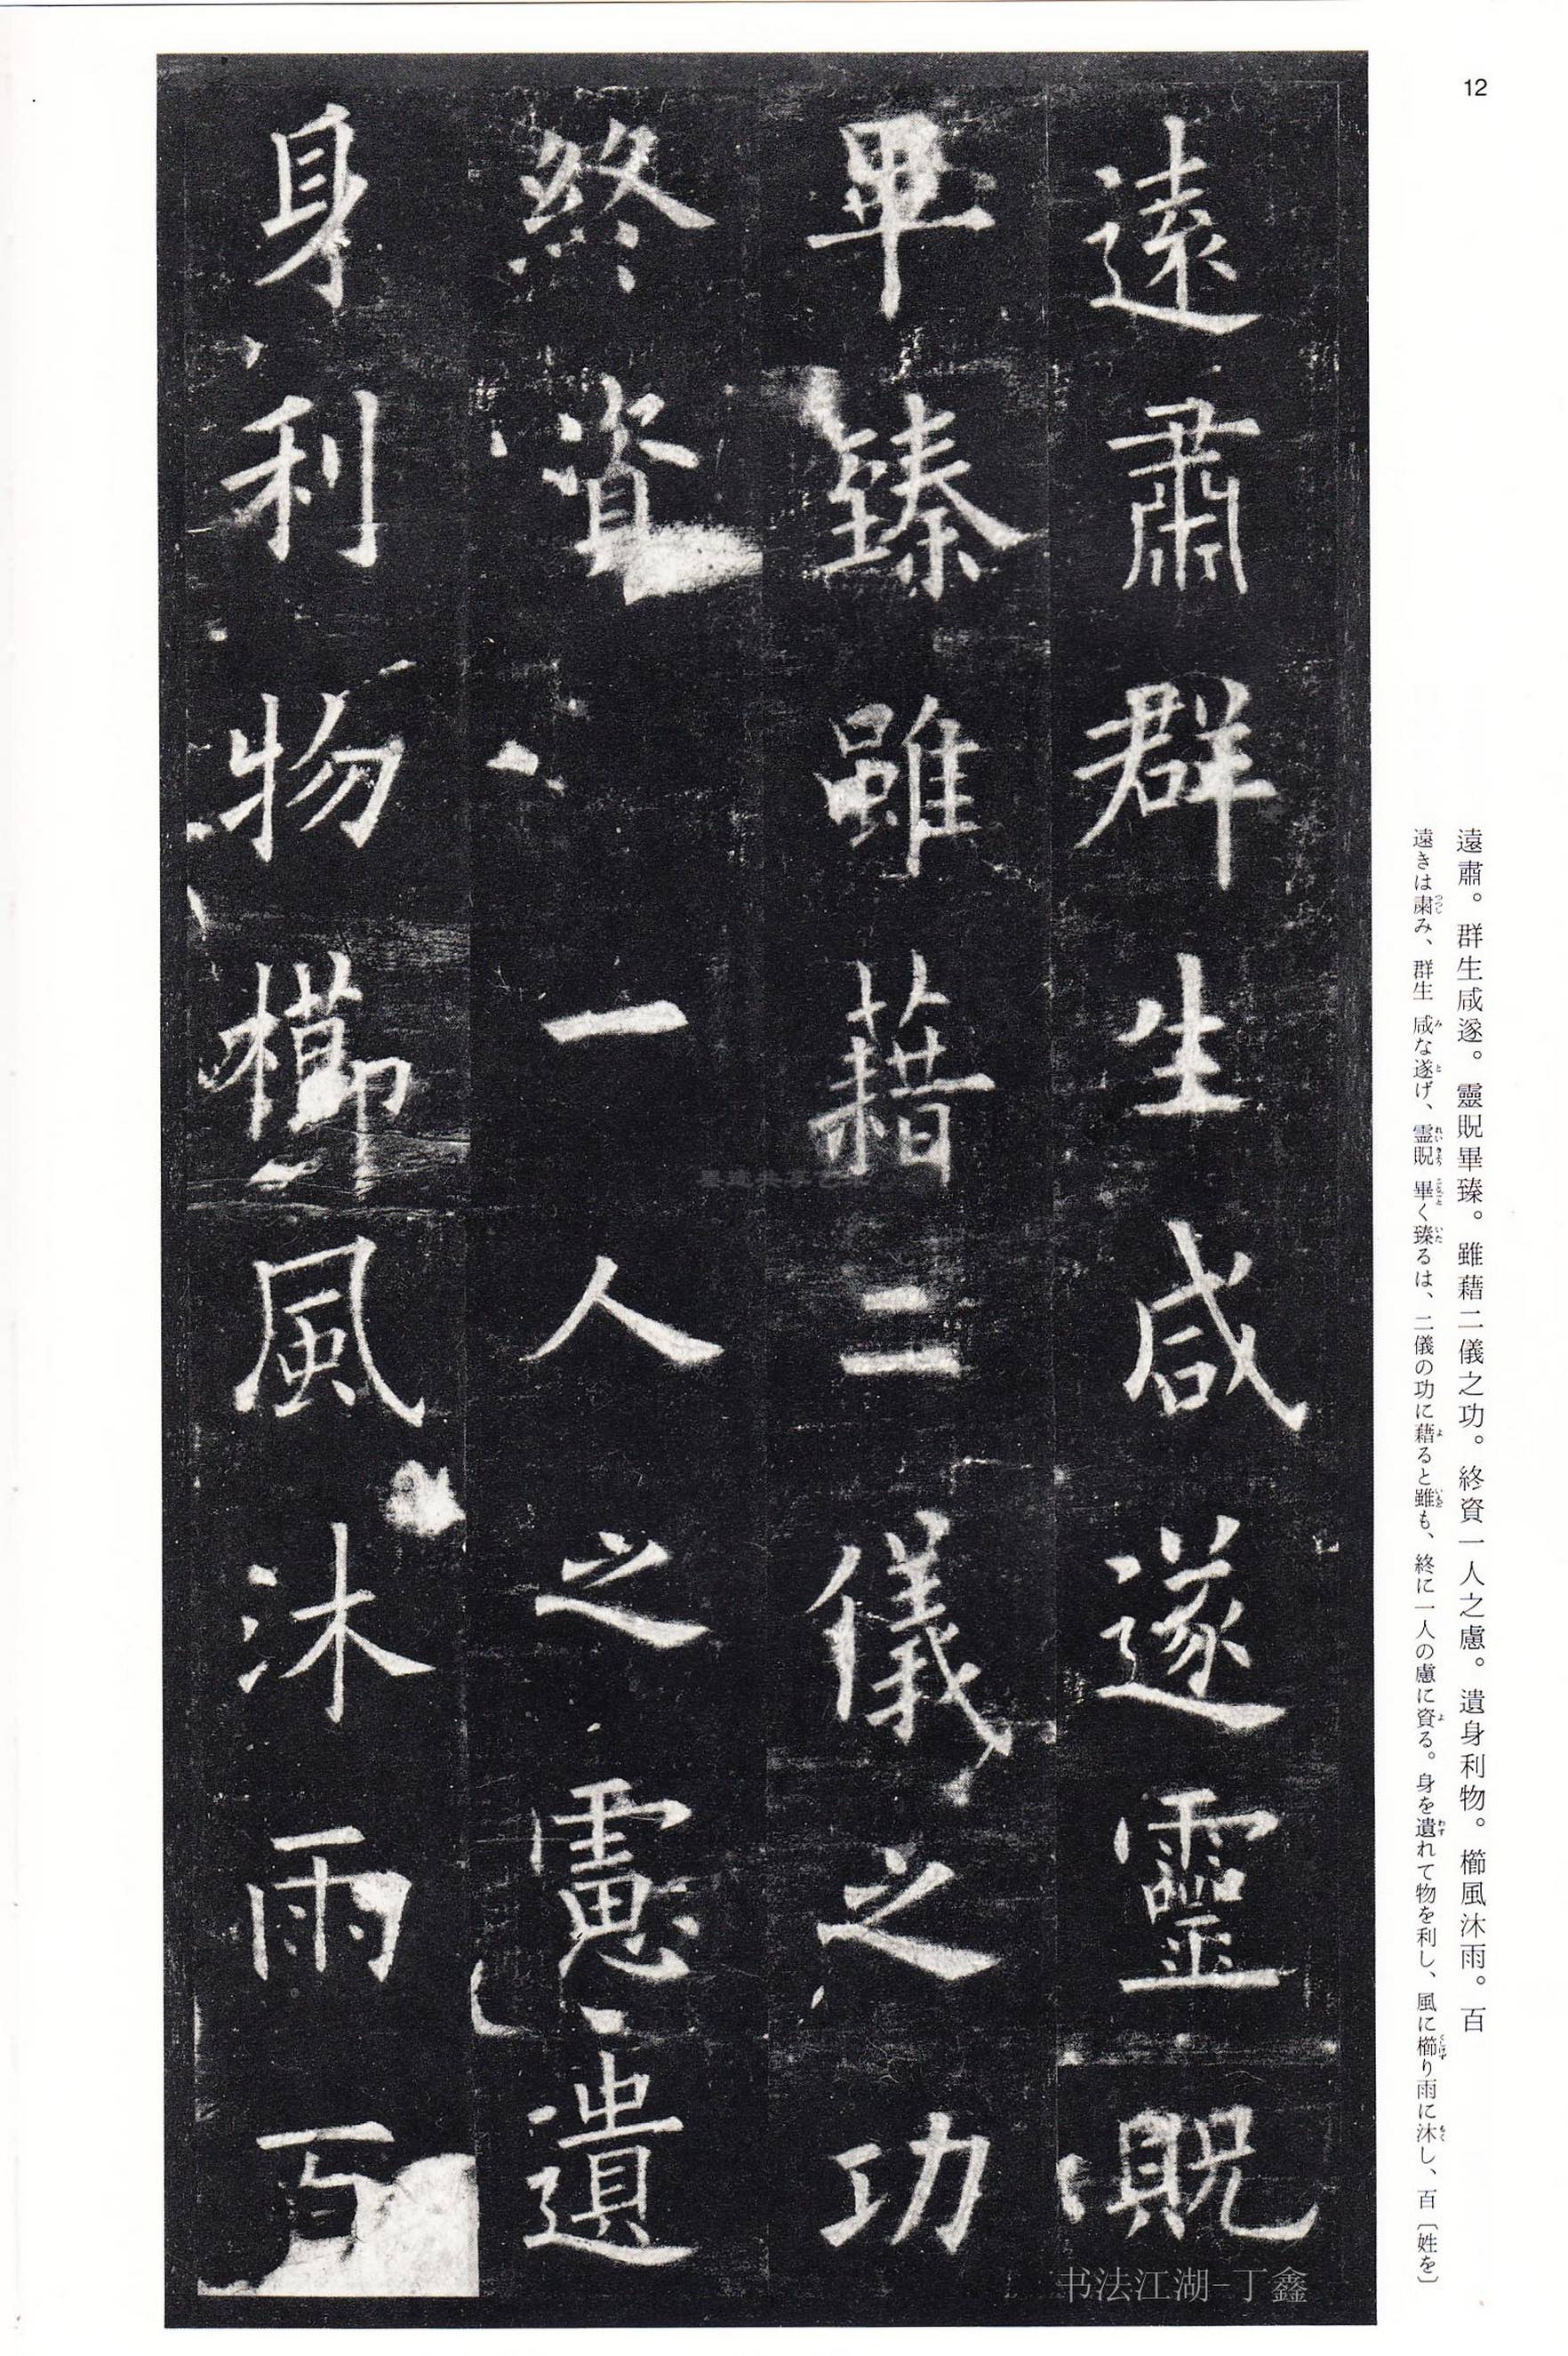 12
遠肅群生咸遂靈貺
畢臻雖藉二儀之功
終資一人之慮遺
身利物櫛風沐雨百
遠肅。群生咸遂。靈貺畢臻。雖藉二儀之功。終資一人之慮。遺身利物。櫛風沐雨。百
遠きは粛み、群生 咸な遂げ、霊貺 畢く臻るは、二儀の功に藉ると雖も、終に一人の慮に資る。身を遺れて物を利し、風に櫛り雨に沐し、百〔姓を〕
书法江湖-丁鑫